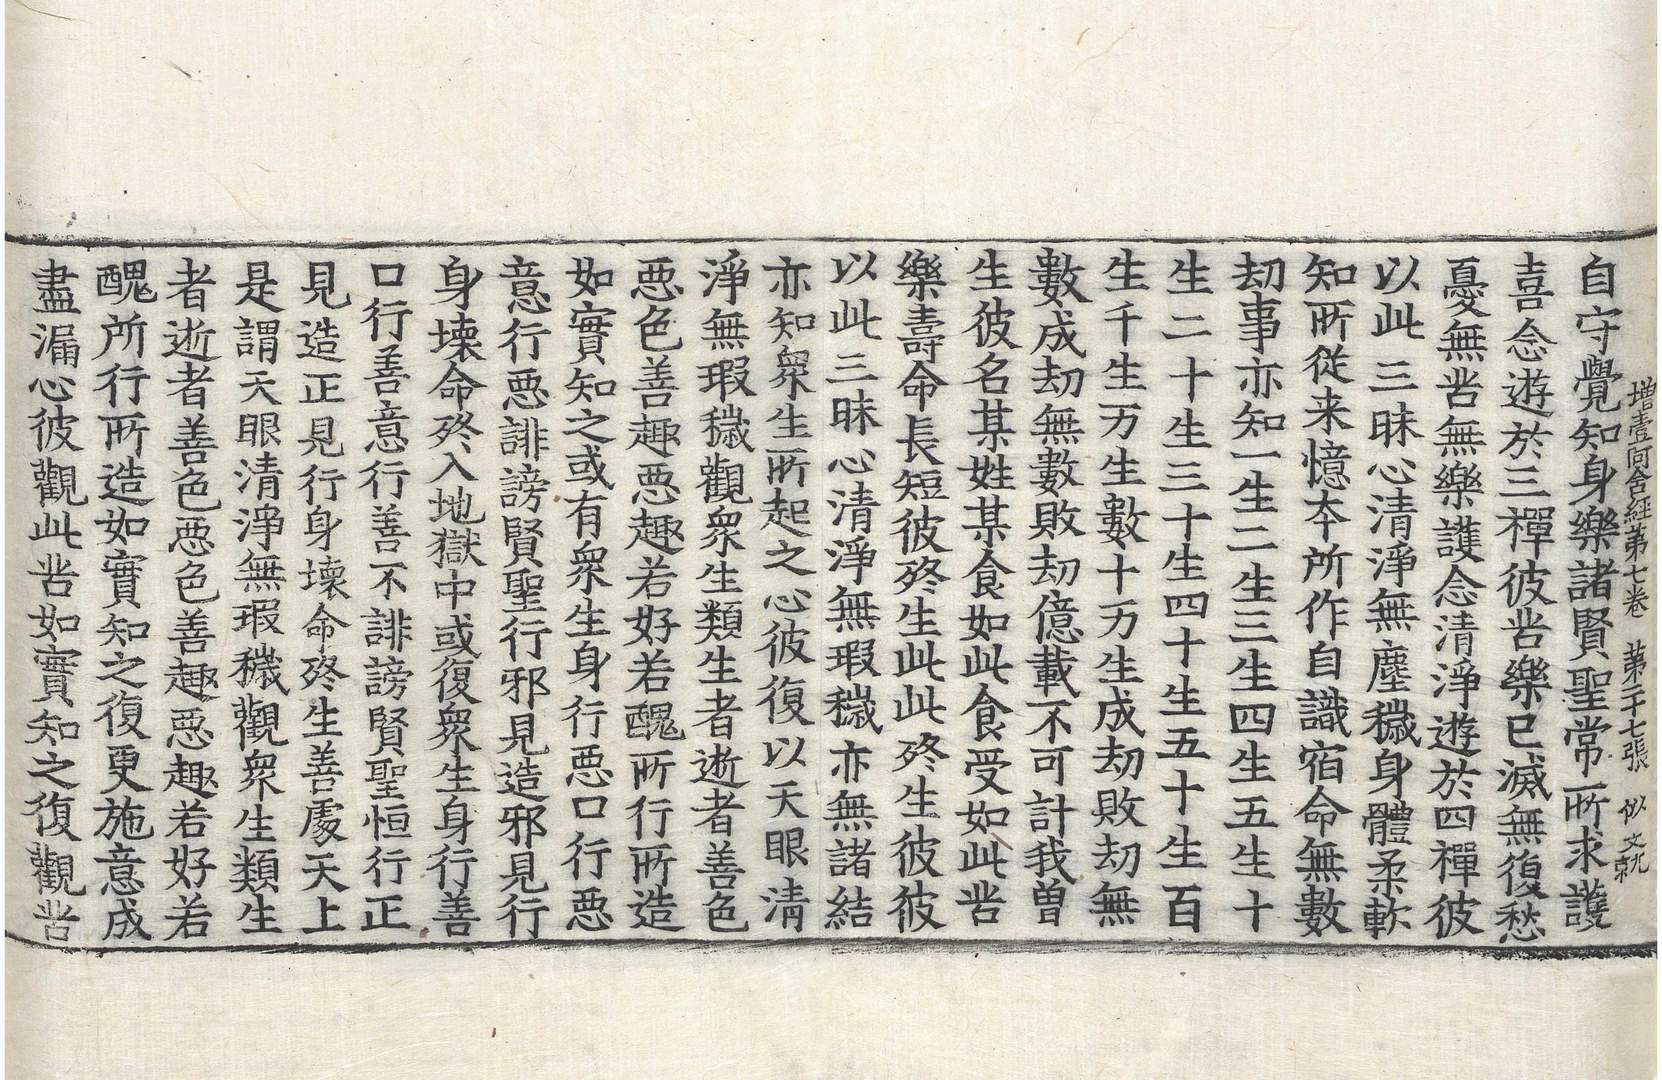 增壹阿含經第七卷 第二十七張 似 文九 京
自守覺知身樂諸賢聖常所求護
喜念遊於三禪彼苦樂已滅無復愁
憂無苦無樂護念清淨遊於四禪彼
以此三昧心清淨無塵穢身體柔軟
知所從来憶本所作自識宿命無數
劫事亦知一生二生三生四生五生十
生二十生三十生四十生五十生百
生千生万生數十万生成劫敗劫無
數成劫無數敗劫億載不可計我曽
生彼名某姓某食如此食受如此苦
樂壽命長短彼终生此此终生彼彼
以此三昧心清淨無瑕穢亦無諸結
亦知衆生所起之心彼復以天眼清
淨無瑕穢觀衆生類生者逝者善色
惡色善趣惡趣若好若醜所行所造
如實知之或有衆生身行惡口行惡
意行惡誹謗賢聖行邪見造邪見行
身壊命终入地獄中或復衆生身行善
口行善意行善不誹謗賢聖恒行正
見造正見行身壊命终生善處天上
是謂天眼清淨無瑕穢觀衆生類生
者逝者善色惡色善趣惡趣若好若
醜所行所造如實知之復更施意成
盡漏心彼觀此苦如實知之復觀苦